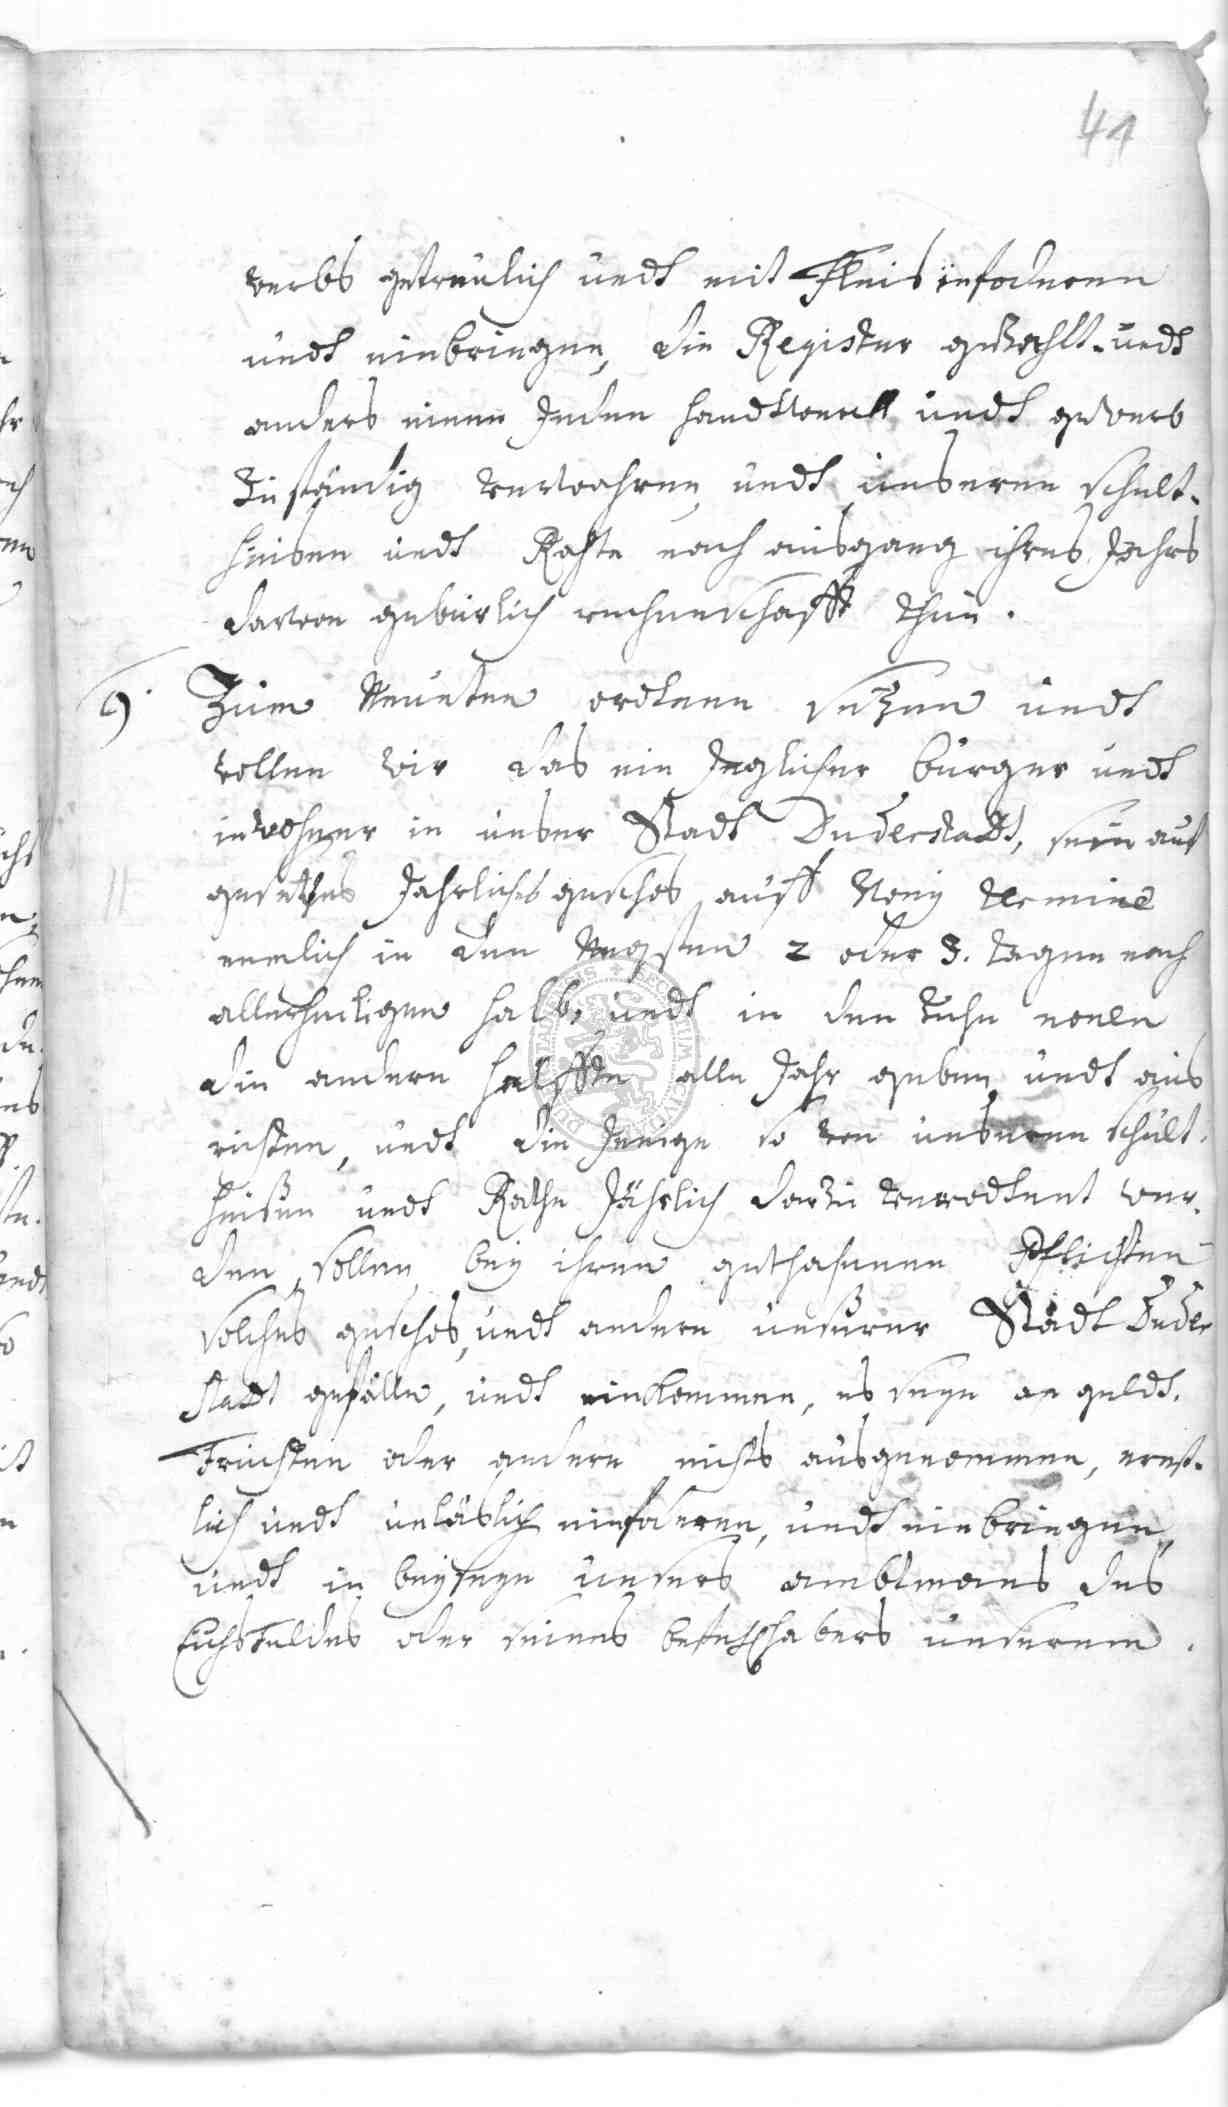 41
werbs getreulich undt mit Fleis infoderenn
undt einbringen, die Register gezehlt undt
anders einem Jeden handtwerck undt gewerb
zustendig verwahren undt unseren schult-
heisen undt Rahte nach ausgang ihres Jahrs
darvon geburlich rechenschafft thun.
9. Zum Neunten ordtnen setzen undt
wollen wir das ein Jeglicher burger undt
inwohner in unser Stadt Duderstadt, sein auf
gesetztes Jahrliches geschos auff termine
nemlich in den Negsten 2 oder 3. tagen nach
allerheiligen halb, undt in den
die andere helffte alle Jahr geben undt aus
richten, undt die Jenige so von unseren schult-
heisen undt Rathe Jährlich darzu verordtent wer-
den sollen bey ihren gethahnen Pflichten
solches geschos, undt andere unserer Stadt Duder
stadt gefälle, undt einkommen, es seye an geldt.
Früchten oder andere nichts ausgenommen, ernst-
lich undt unläslich einfoderen, undt einbringen,
undt in beyseyn unsers ambtmans des
Eichsfeldes oder seines befelchhabers unserem.